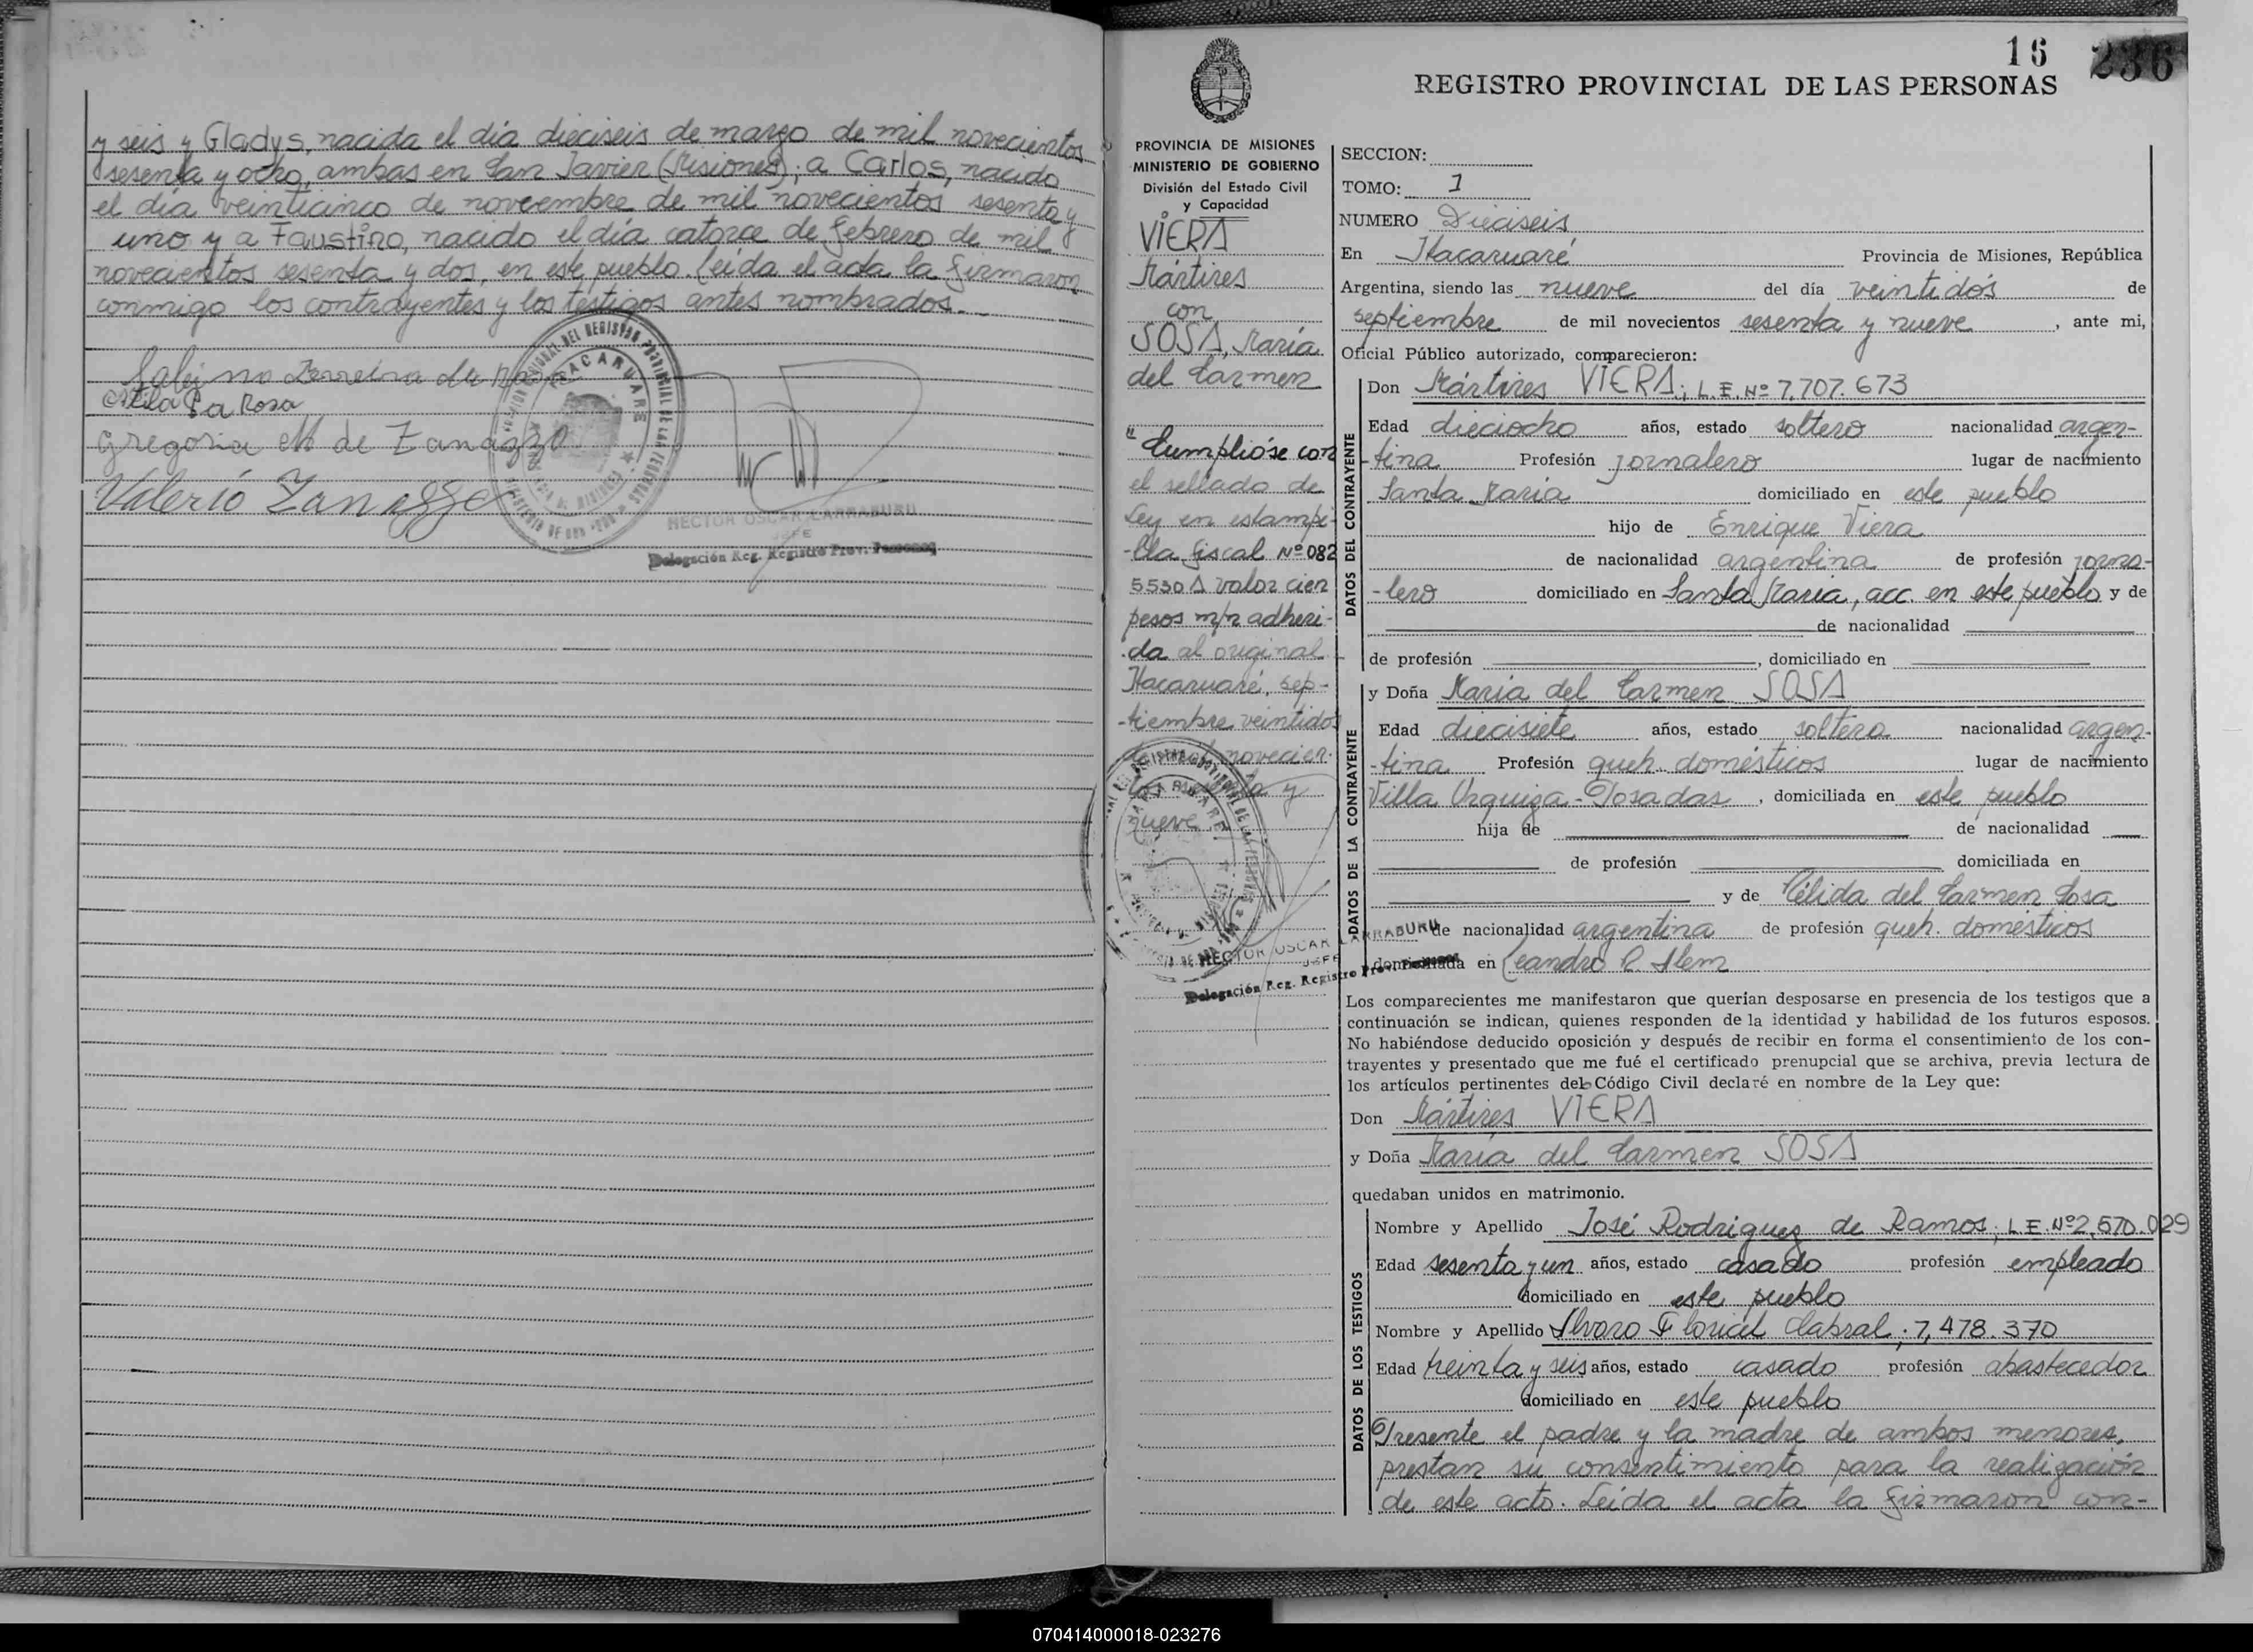 y seis y Gladys, nacida el día dieciseis de marzo de mil novecientos
sesenta y ocho, ambas en San Javier (Misiones); a Carlos, nacido
el día veinticinco de noviembre de mil novecientos sesenta y
uno y a Faustino, nacido el día catorce de febrero de mil
novecientos sesenta y dos, en este pueblo. Leída el acta la firmaron
conmigo los contrayentes y los testigos antes nombrados.
Gregoria M de Zanazzo
Valerio Zanazzo
ITACARUARE
HECTOR OSCAR LARRABURU
JEFE
Delegación Reg. Registro Prov. Personas
16 236
REGISTRO PROVINCIAL DE LAS PERSONAS
PROVINCIA DE MISIONES
MINISTERIO DE GOBIERNO
División del Estado Civil
y Capacidad
VIERA
Mártires
con
SOSA, María
del Carmen
"Cumplióse con
el sellado de
Ley en estampi-
-lla fiscal Nº 082
5530 A valor cien
pesos m/n adheri-
da al original
Itacaruaré, sep-
-tiembre veintidos
novecien-
y
nueve
HECTOR OSCAR LARRABURU
JEFE
Delegación Reg. Registro Prov. Personas
SECCION:
TOMO: 1
NUMERO Dieciseis
En Itacaruaré Provincia de Misiones, República
Argentina, siendo las nueve del día veintidós de
septiembre de mil novecientos sesenta y nueve, ante mi,
Oficial Público autorizado, comparecieron:
DATOS DEL CONTRAYENTE
Don Mártires VIERA; L.E. Nº 7.707.673
Edad dieciocho años, estado soltero nacionalidad argen-
-tina Profesión jornalero lugar de nacimiento
Santa María domiciliado en este pueblo
hijo de Enrique Viera
de nacionalidad argentina de profesión jorna-
-lero domiciliado en Santa María, acc. en este pueblo y de
de nacionalidad
de profesión , domiciliado en
DATOS DE LA CONTRAYENTE
y Doña María del Carmen SOSA
Edad diecisiete años, estado soltera nacionalidad argen-
-tina Profesión queh. domésticos lugar de nacimiento
Villa Urquiza - Posadas, domiciliada en este pueblo
hija de de nacionalidad
de profesión domiciliada en
y de Célida del Carmen Sosa
de nacionalidad argentina de profesión queh. domésticos
domiciliada en Leandro N. Alem
Los comparecientes me manifestaron que querían desposarse en presencia de los testigos que a
continuación se indican, quienes responden de la identidad y habilidad de los futuros esposos.
No habiéndose deducido oposición y después de recibir en forma el consentimiento de los con-
trayentes y presentado que me fué el certificado prenupcial que se archiva, previa lectura de
los artículos pertinentes del Código Civil declaré en nombre de la Ley que:
Don Mártires VIERA
y Doña María del Carmen SOSA
quedaban unidos en matrimonio.
DATOS DE LOS TESTIGOS
Nombre y Apellido José Rodriguez de Ramos; L.E. Nº 2.570.029
Edad sesenta y un años, estado casado profesión empleado
domiciliado en este pueblo
Nombre y Apellido Alvaro Floriel Cabral; 7.478.370
Edad treinta y seis años, estado casado profesión abastecedor
domiciliado en este pueblo
Presente el padre y la madre de ambos menores,
prestan su consentimiento para la realización
de este acto. Leída el acta la firmaron con-
070414000018-023276